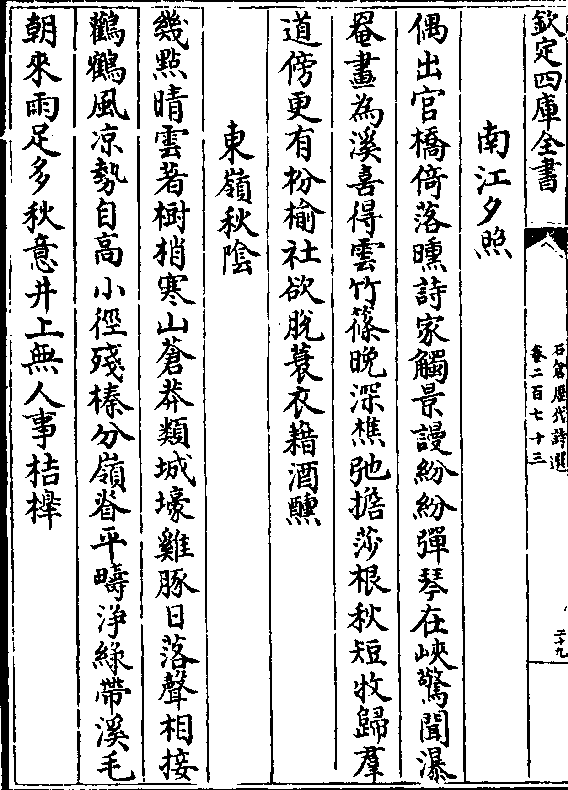 欽定四庫全書
石倉歷代詩選
卷二百七十三
二十九
南江夕照
偶出官橋倚落曛詩家觸景謾紛紛彈琴在峽驚聞瀑
罨畫為溪喜得雲竹篠晚深樵弛擔莎根秋短牧歸羣
道傍更有枌榆社欲脫蓑衣藉酒醺
東嶺秋陰
幾點晴雲著樹梢寒山蒼莽類城壕雞豚日落聲相接
鸛鶴風凉勢自高小徑殘榛分嶺脊平疇浄綠帶溪毛
朝來雨足多秋意井上無人事桔槔